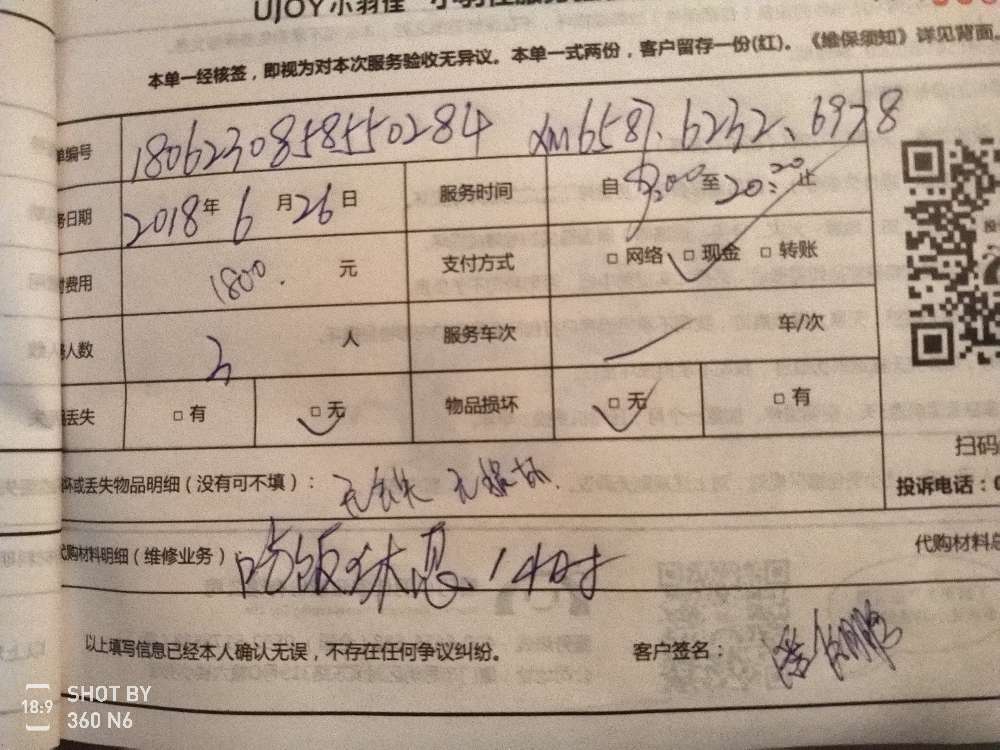 UJOY小羽佳
本单一经核签，即视为对本次服务验收无异议。本单一式两份，客户留存一份(红)。《维保须知》详见背面。
单编号 180623085855550284 xm6587、6232、6938
务日期 2018年6月26日 服务时间 自9:00至20:20止
费用 1800. 元 支付方式 □网络 □现金 □转账
人数 人 服务车次 车/次
丢失 □有 □无 物品损坏 □无 □有
坏或丢失物品明细（没有可不填）： 无丢失 无损坏.
扫码
投诉电话：0
代购材料明细（维修业务）： 吃饭休息1小时
代购材料总
以上填写信息已经本人确认无误，不存在任何争议纠纷。 客户签名：
18:9 SHOT BY
360 N6